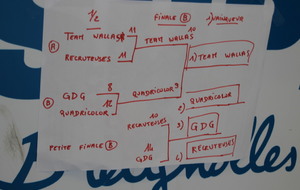 1/2
FINALE B
1) VAINQUEUR
A
TEAM WALLAS 11
RECRUTEUSES 11
TEAM WALLAS 10
1) TEAM WALLAS
B
GDG 8
QUADRICOLOR 12
QUADRICOLOR 9
2) QUADRICOLOR
RECRUTEUSES 10
3) GDG
PETITE FINALE B
GDG
4) RECRUTEUSES